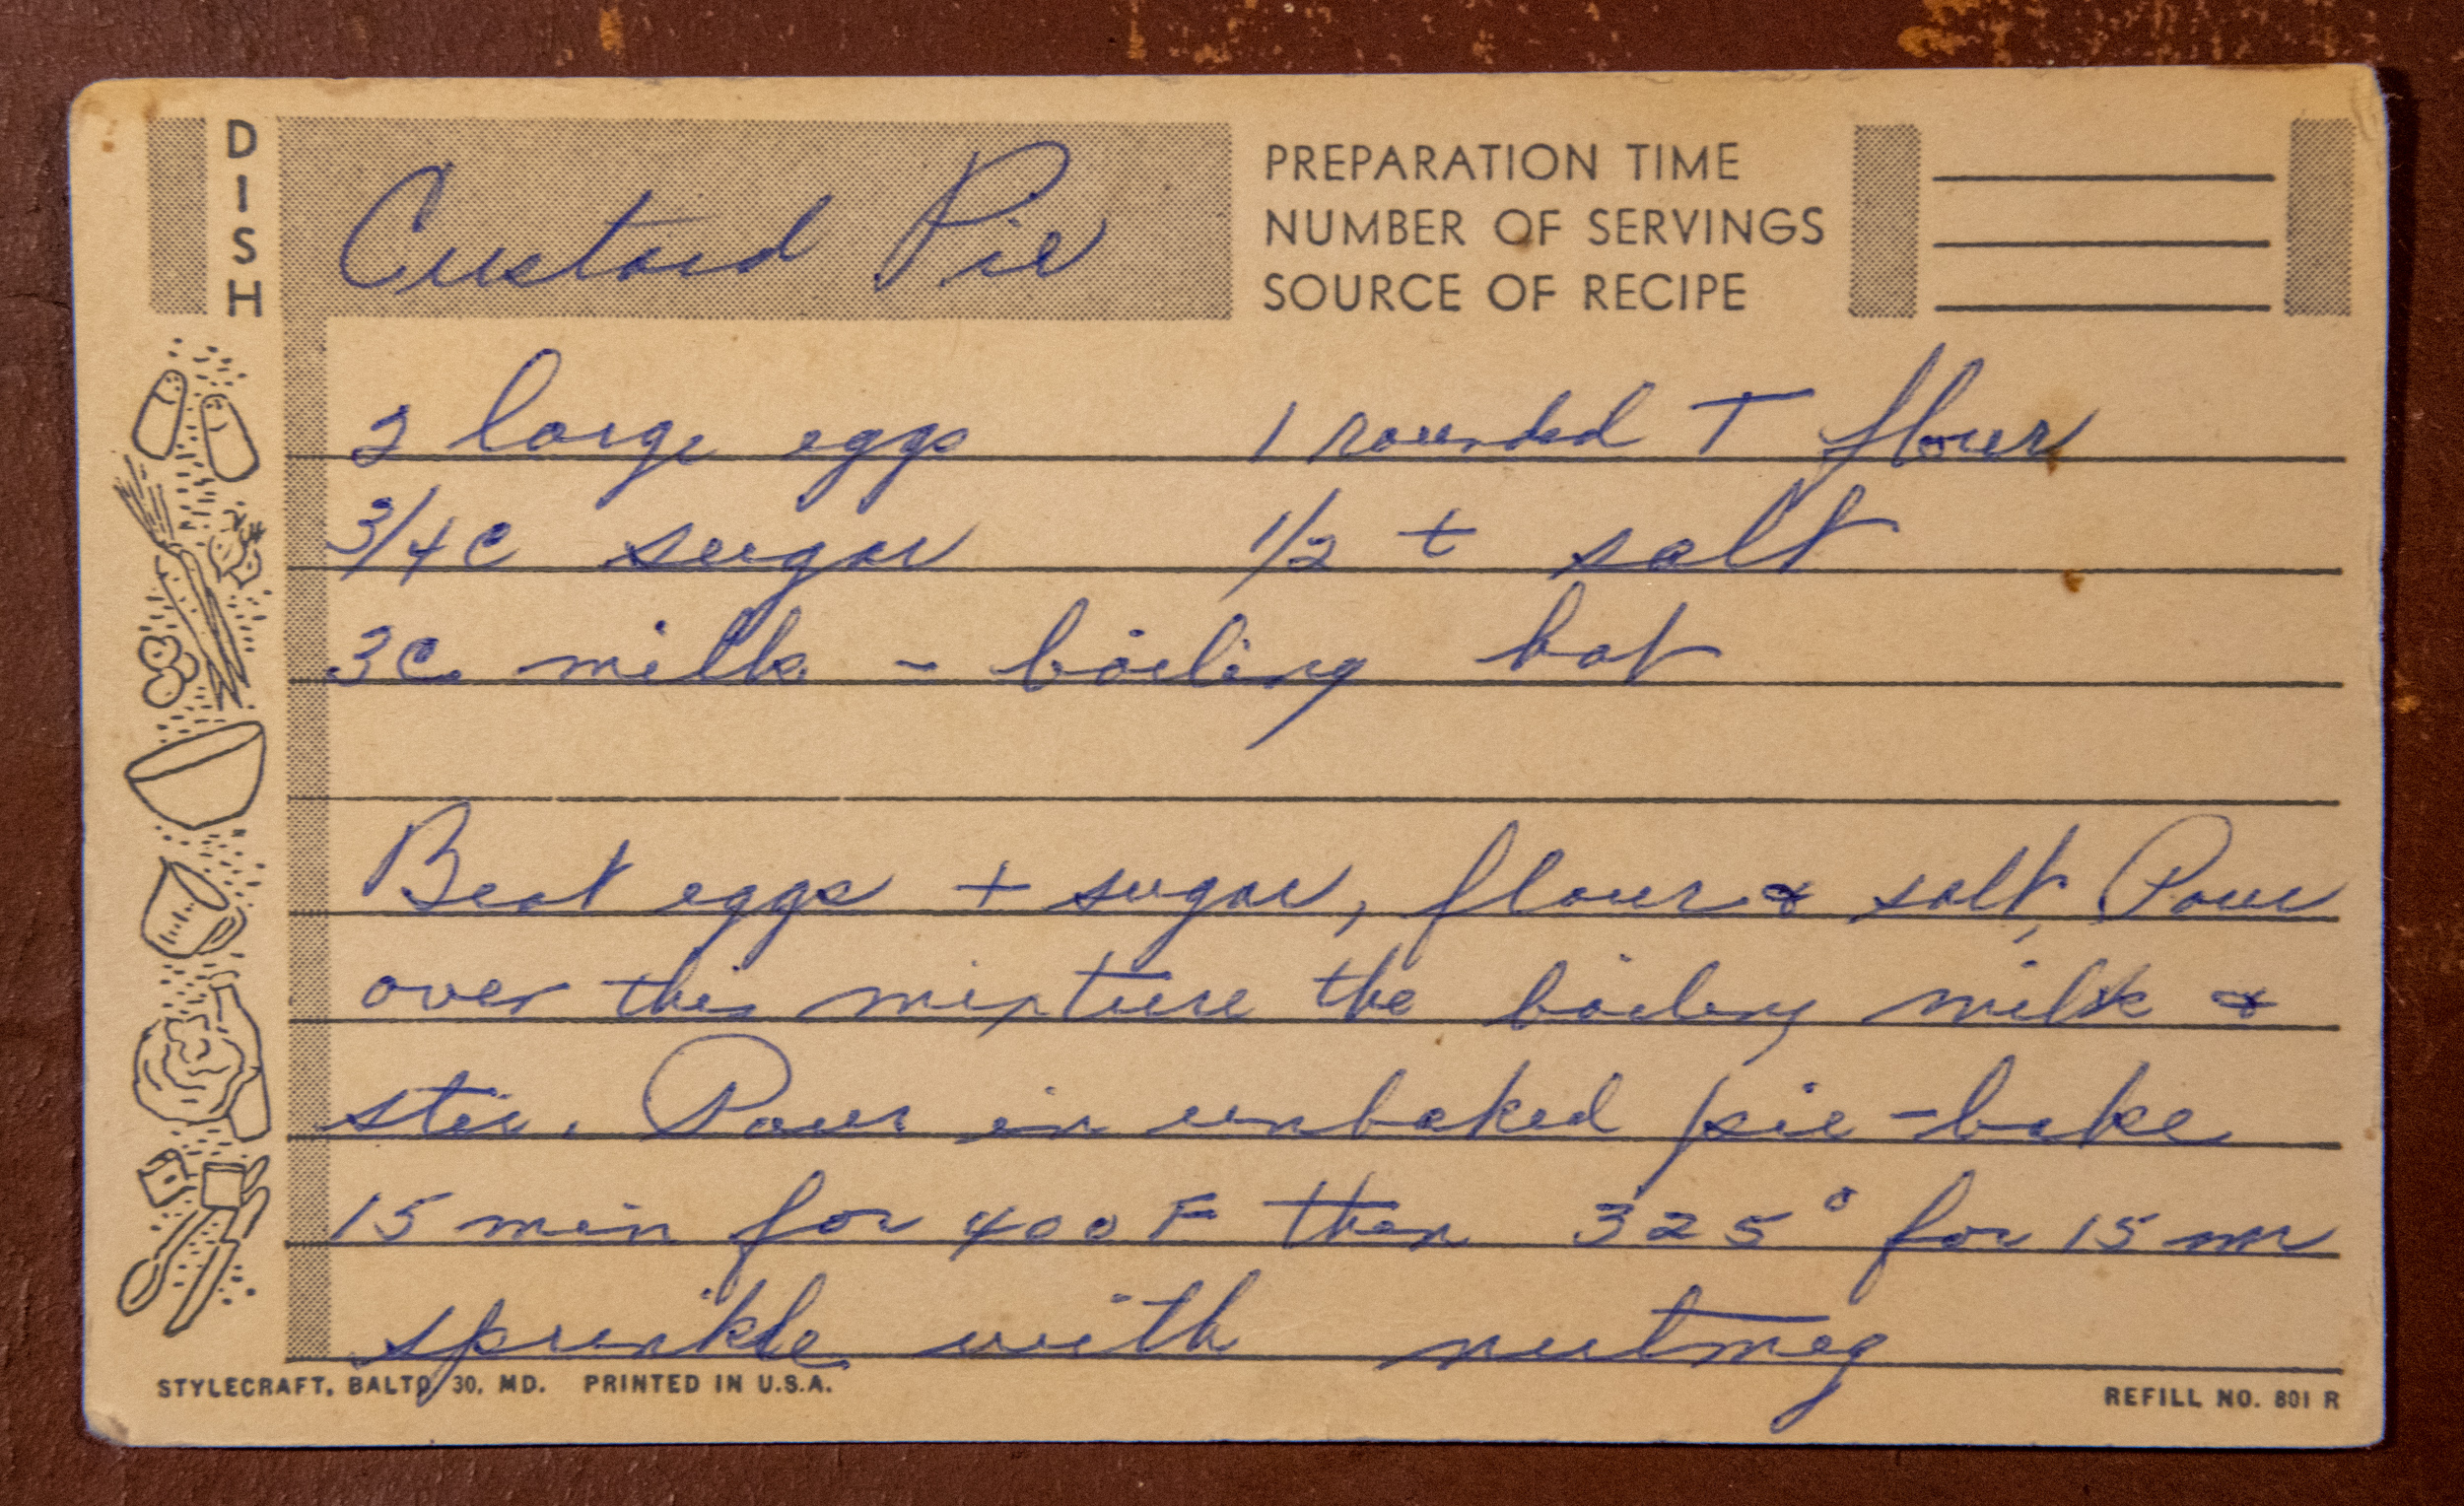 DISH
Custard Pie
PREPARATION TIME
NUMBER OF SERVINGS
SOURCE OF RECIPE
2 large eggs 1 rounded T flour
3/4 C sugar 1/2 t salt
3 C. milk - boiling hot
Beat eggs + sugar, flour & salt, Pour
over this mixture the boiling milk &
stir. Pour in unbaked pie - bake
15 min for 400 F then 325° for 15 min
sprinkle with nutmeg
STYLECRAFT, BALTO 30, MD. PRINTED IN U.S.A.
REFILL NO. 801 R